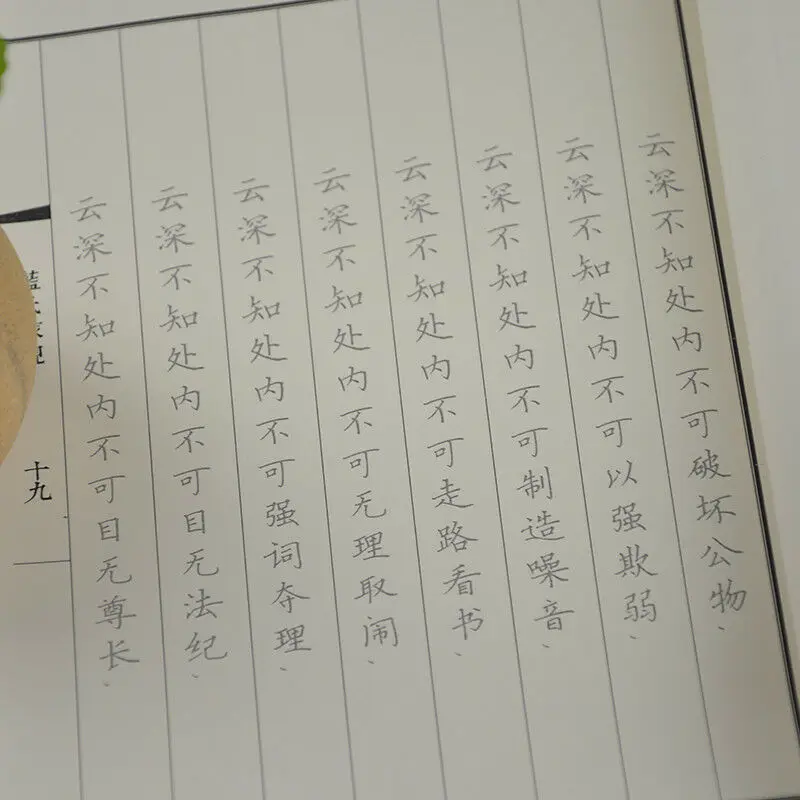 云深不知处内不可破坏公物、
云深不知处内不可以强欺弱、
云深不知处内不可制造噪音、
云深不知处内不可走路看书、
云深不知处内不可无理取闹、
云深不知处内不可强词夺理、
云深不知处内不可目无法纪、
云深不知处内不可目无尊长、
十九